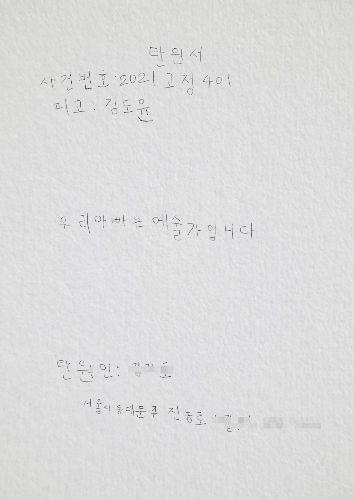 탄원서
사건번호:2021고정401
피고. 김도윤
우리아빠는예술가입니다
탄원인:
서울시동대문구 전농로